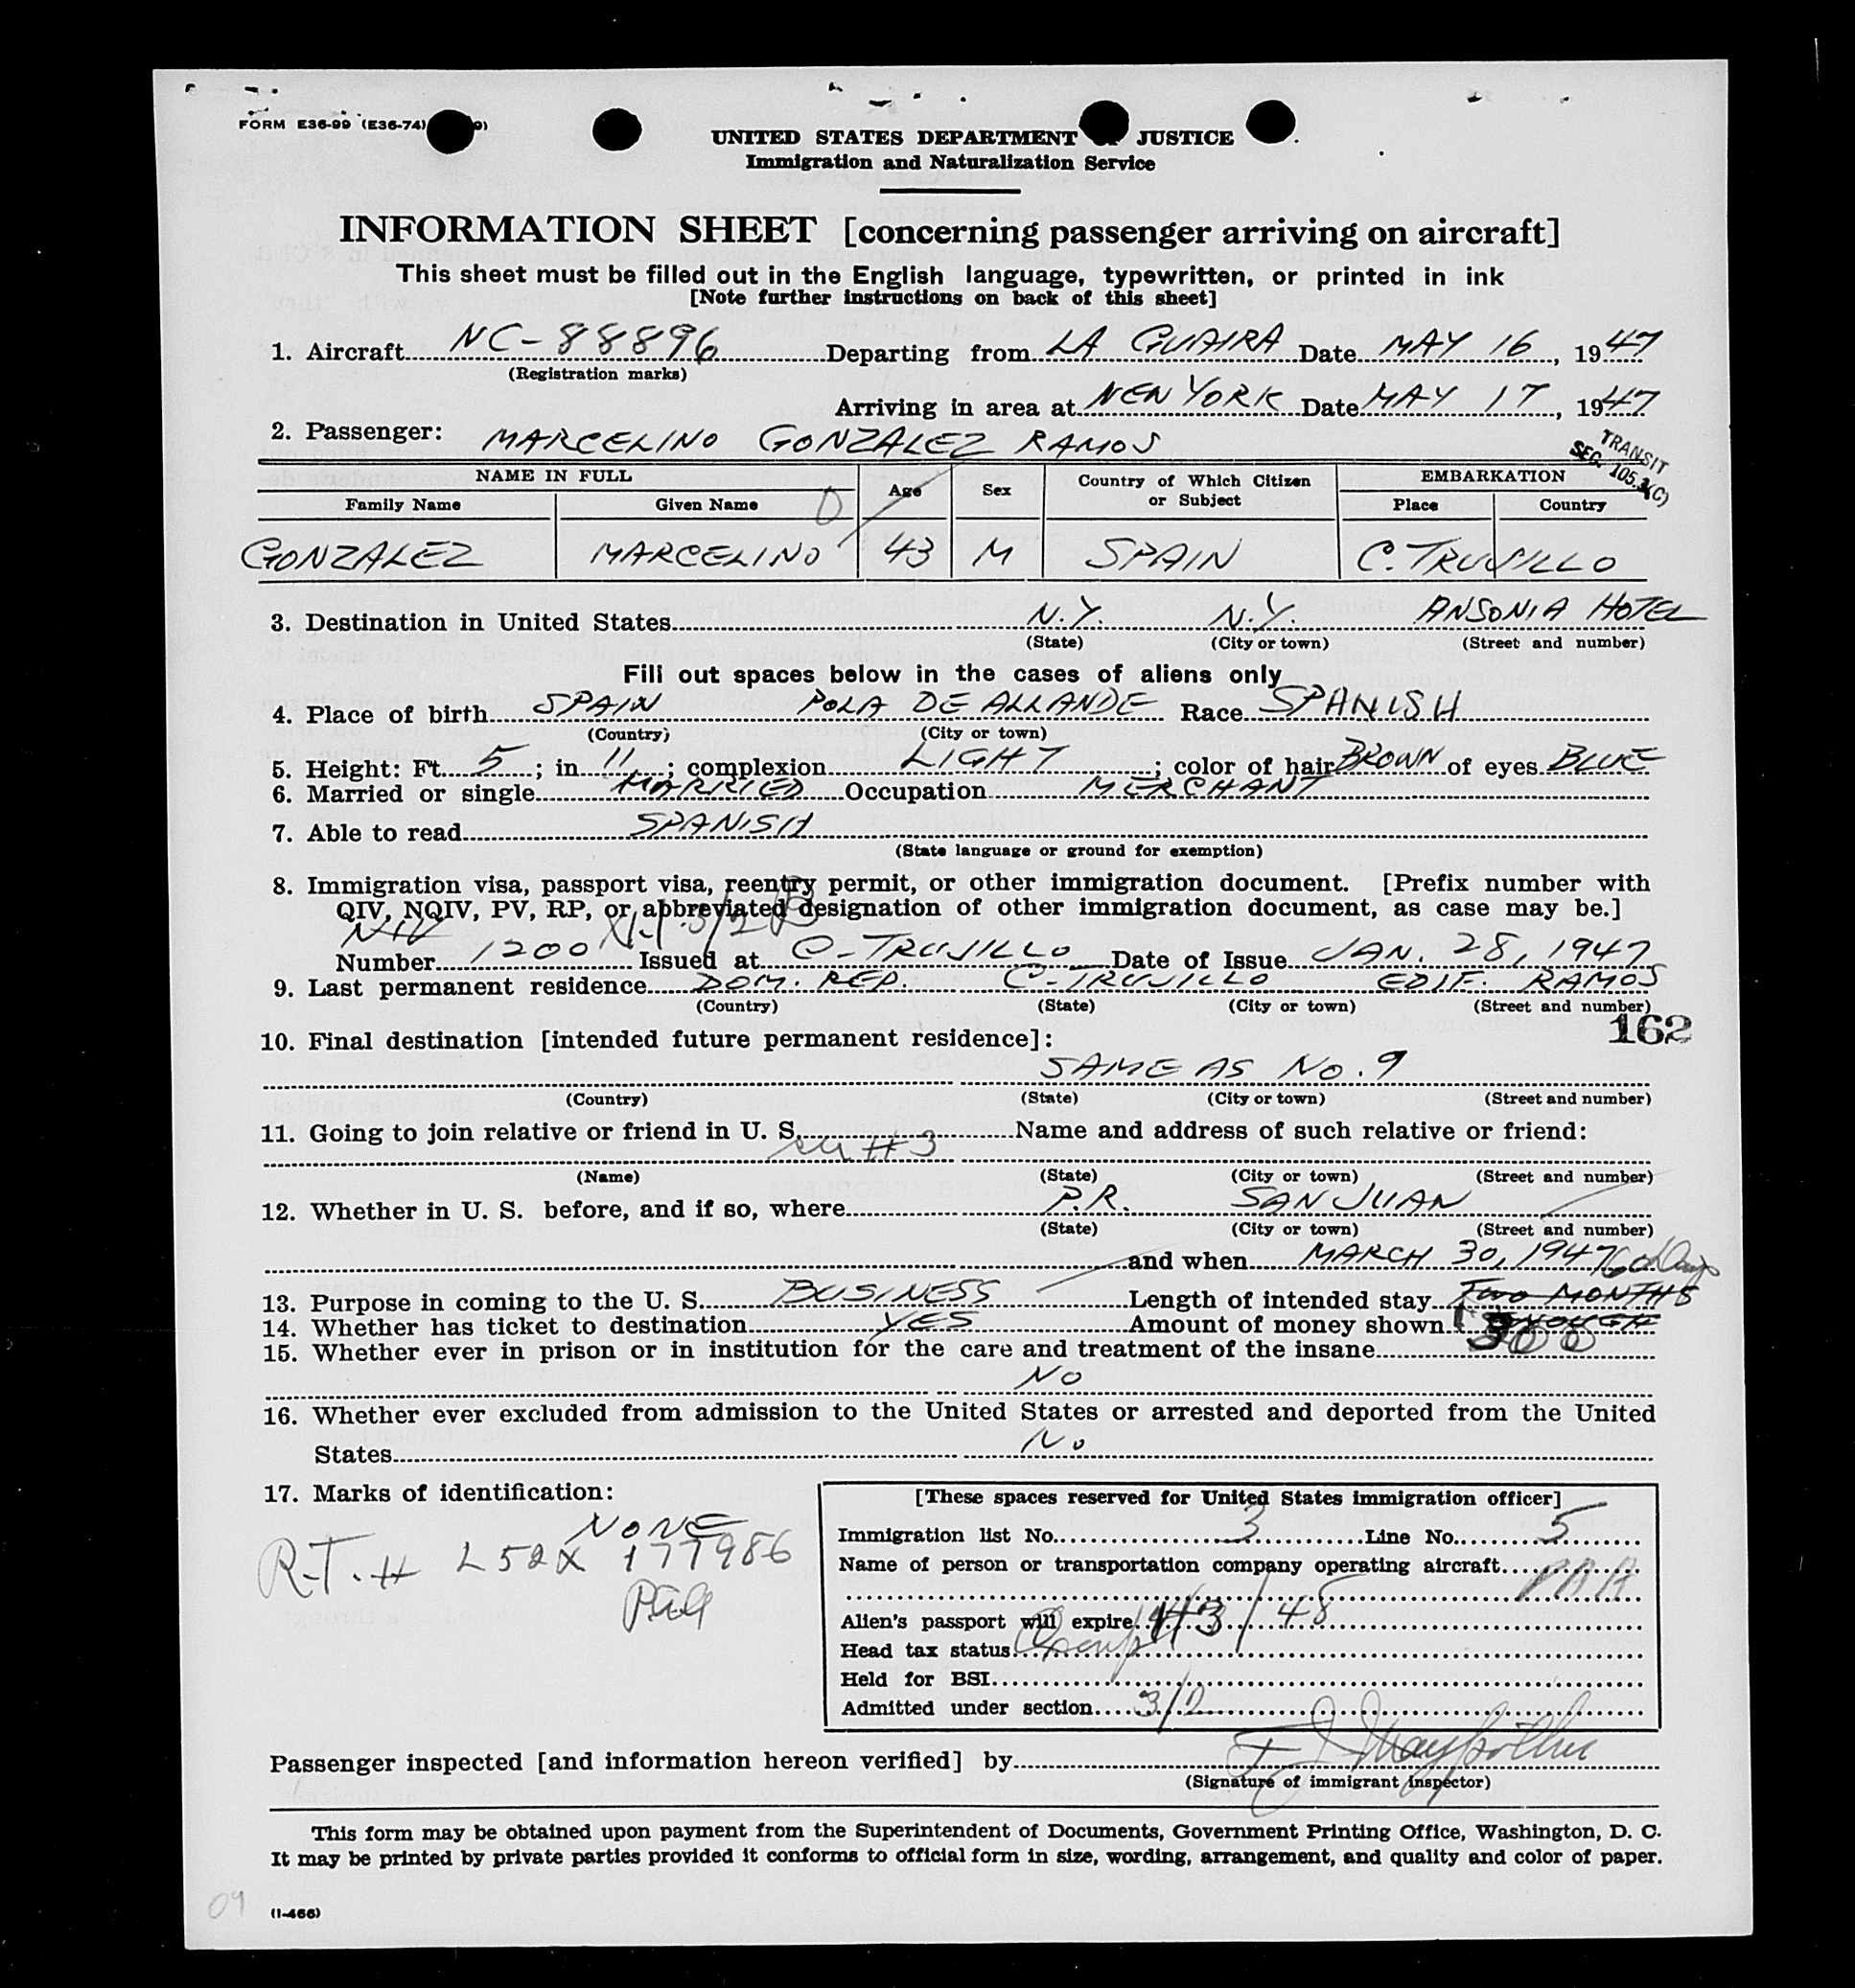 FORM E36-99 (E36-74)
UNITED STATES DEPARTMENT JUSTICE
Immigration and Naturalization Service
INFORMATION SHEET [concerning passenger arriving on aircraft]
This sheet must be filled out in the English language, typewritten, or printed in ink
[Note further instructions on back of this sheet]
1. Aircraft NC-88896 Departing from LA GUAIRA Date MAY 16, 1947
(Registration marks)
Arriving in area at NEW YORK Date MAY 17, 1947
2. Passenger: MARCELINO GONZALEZ RAMOS
TRANSIT
SEC. 105.3(C)
NAME IN FULL Age Sex Country of Which Citizen or Subject EMBARKATION
Family Name Given Name Place Country
GONZALEZ MARCELINO 43 M SPAIN C. TRUJILLO
3. Destination in United States N.Y. N.Y. ANSONIA HOTEL
(State) (City or town) (Street and number)
Fill out spaces below in the cases of aliens only
4. Place of birth SPAIN POLA DE ALLANDE Race SPANISH
(Country) (City or town)
5. Height: Ft. 5; in. 11; complexion LIGHT; color of hair BROWN of eyes BLUE
6. Married or single MARRIED Occupation MERCHANT
7. Able to read SPANISH
(State language or ground for exemption)
8. Immigration visa, passport visa, reentry permit, or other immigration document. [Prefix number with
QIV, NQIV, PV, RP, or abbreviated designation of other immigration document, as case may be.]
NIV 3/2
Number 1200 Issued at C-TRUJILLO Date of Issue JAN. 28, 1947
9. Last permanent residence DOM. REP. C-TRUJILLO EDIF. RAMOS
(Country) (State) (City or town) (Street and number)
162
10. Final destination [intended future permanent residence]:
SAME AS NO. 9
(Country) (State) (City or town) (Street and number)
11. Going to join relative or friend in U. S. Name and address of such relative or friend:
#3
(Name) (State) (City or town) (Street and number)
12. Whether in U. S. before, and if so, where P.R. SAN JUAN
(State) (City or town) (Street and number)
and when MARCH 30, 1947 60 days
13. Purpose in coming to the U. S. BUSINESS Length of intended stay TWO MONTHS
14. Whether has ticket to destination YES Amount of money shown ENOUGH 300
15. Whether ever in prison or in institution for the care and treatment of the insane
NO
16. Whether ever excluded from admission to the United States or arrested and deported from the United
States NO
17. Marks of identification:
NONE
R.T. # L52X 177986
[These spaces reserved for United States immigration officer]
Immigration list No. 3 Line No. 5
Name of person or transportation company operating aircraft PAA
Alien's passport will expire 48
Head tax status
Held for BSI
Admitted under section 3/2
Passenger inspected [and information hereon verified] by
(Signature of immigrant inspector)
This form may be obtained upon payment from the Superintendent of Documents, Government Printing Office, Washington, D. C.
It may be printed by private parties provided it conforms to official form in size, wording, arrangement, and quality and color of paper.
09
(I-466)